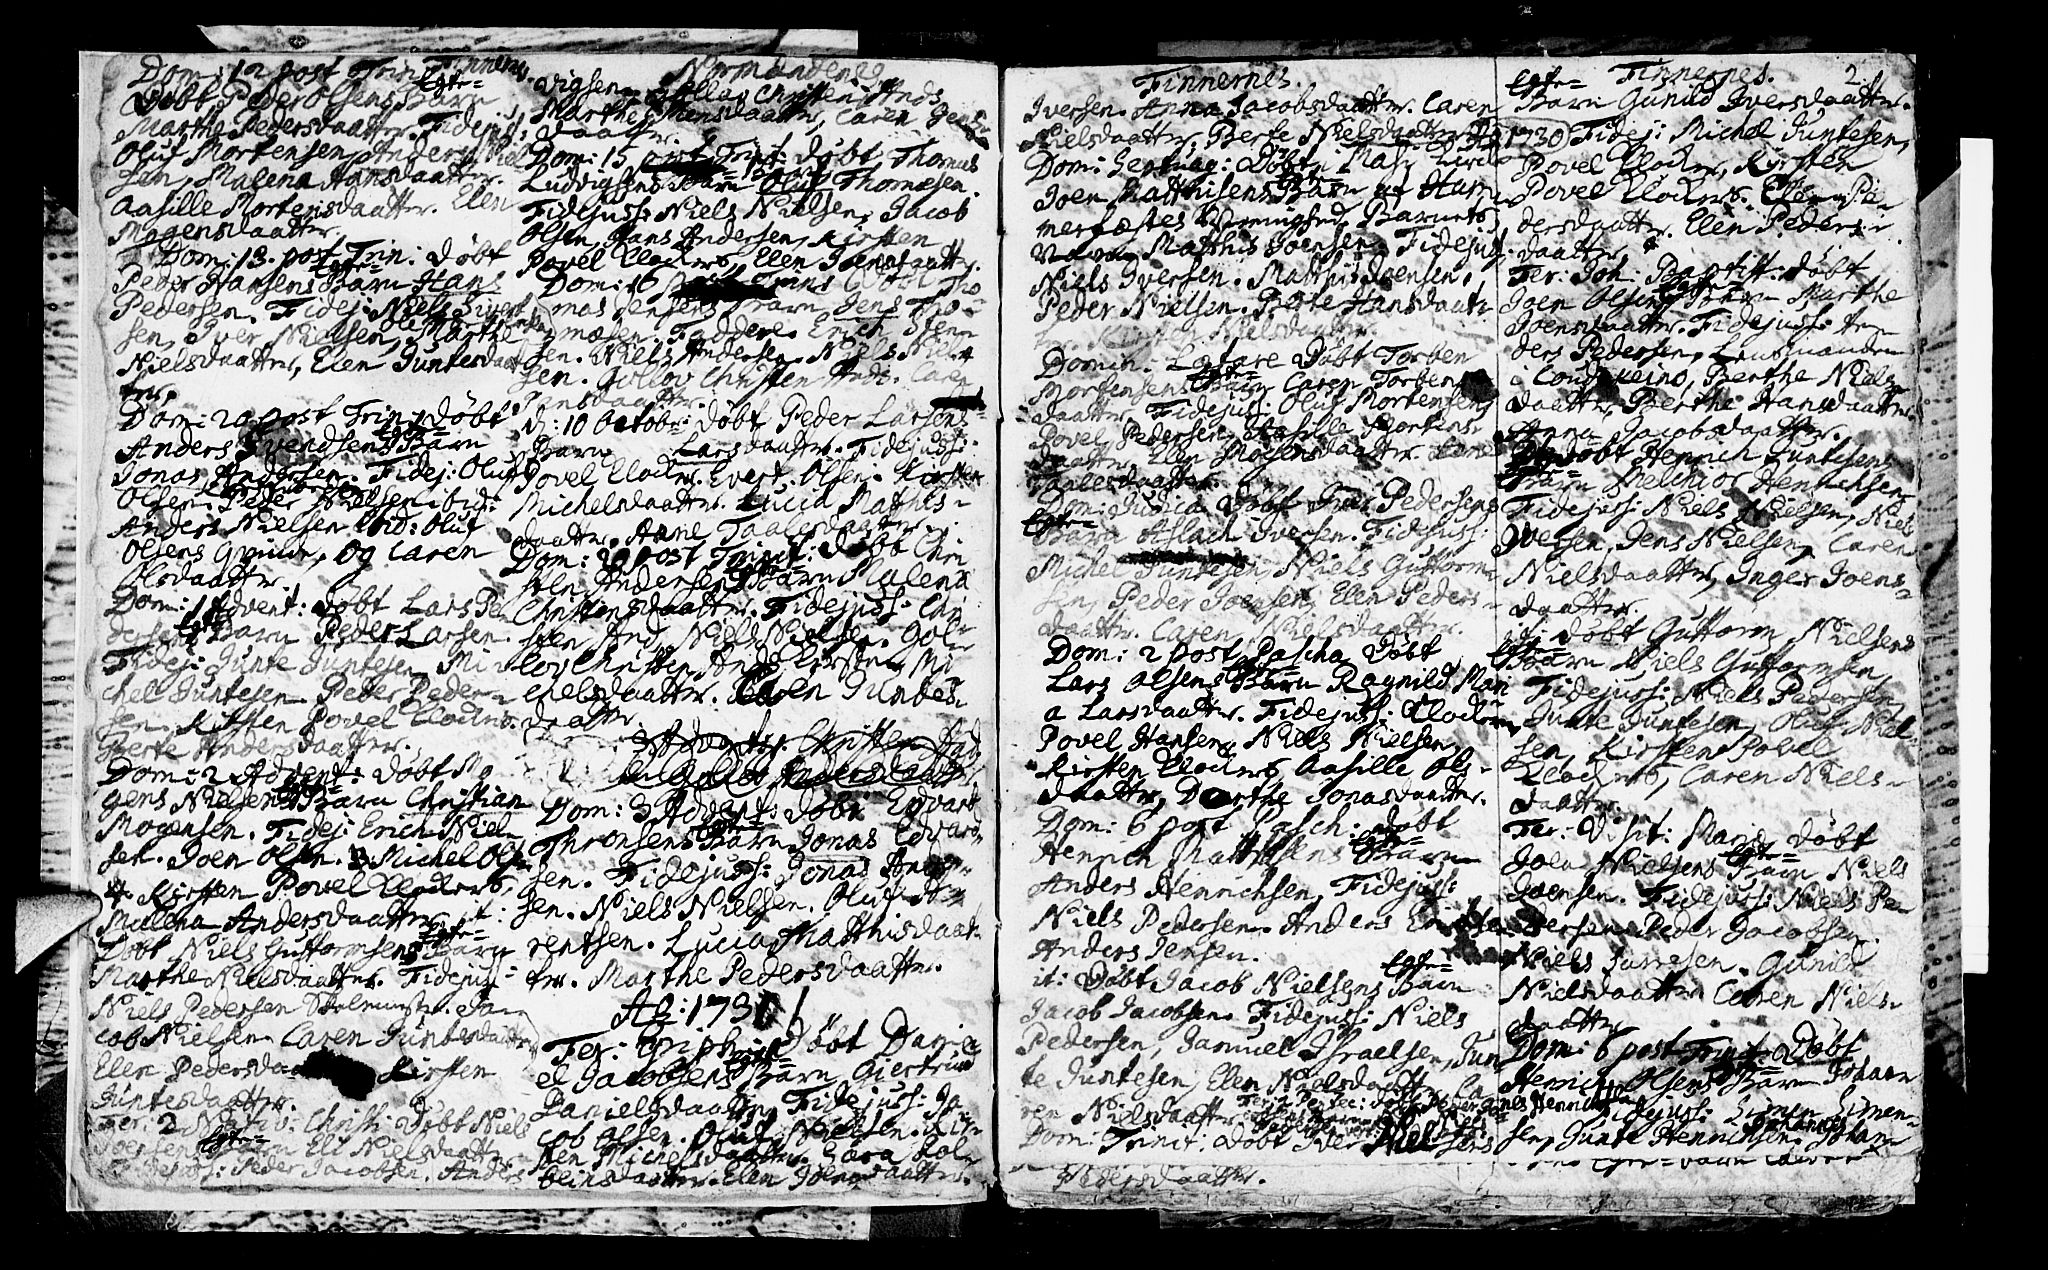 Finnernes.
Dom: 12 post Trin:
Døbt Peder Olsens Egte-Barn
Marthe Pedersdaatter. Fidejuss:
Oluf Mortensen, Anders Niel
sen, Malena Hansdaatter.
Aasille Mortensdaatter. Elen
Mogensdaatter.
Dom: 13. post Trin: Døbt
Peder Hansens Egte-Barn Hans
Pedersen. Fidej: Niels Sivert
sen, Iver Nielsen, Marthe
Nielsdaatter, Elen Juntesdaat
ter,
Dom: 20 post Trin: Døbt
Anders Svendsens Egte-Barn
Jonas Andersen. Fidej: Oluf
Olsen. Peder Nielsen ibid:
Anders Nielsen ibid: Oluf
Olsens Qvinde, og Caren
Olsdaatter.
Dom: 1 Advent: Døbt Lars Pe
dersens Egte-Barn Peder Larsen.
Fidej: Junte Juntesen, Mi
chel Juntesen. Peder Peder-
sen. Kirsten Povel Klockers.
Berte Andersdaatter.
Dom: 2 Advent: Døbt Mo
gens Nielsens Egte-Barn Christian
Mogensen. Fidej: Erich Niel
sen. Joen Olsen. Michel Olsen
Kirsten Povel Klockers,
Malena Andersdaatter. it:
Døbt Niels Guttormsens Egte-Barn
Marthe Nielsdaatter. Fidejuss:
Niels Pedersen Skolemester. Ja
cob Nielsen. Caren Juntesdaatter
Elen Pedersdaa Kirsten
Juntesdaatter.
Fer: 2 Nativ: Christi: Døbt Niels
Joensens Egte-Barn Eli Nielsdaatter
Fidejuss: Peder Jacobsen. Anders
Normændenes
vigsen. Gollav Christen Ands.
Marthe Jensdaatter, Caren Jens
daatter.
Dom: 15 post Trinit: Døbt Thomas
Ludvigsens Barn Oluf Thomesen.
Fidejuss: Niels Nielsen, Jacob
Olsen, Hans Andersen, Kirsten
Povel Klockers, Elen Joensdaatter.
Dom: 16 Trinit Døbt Tho
mas Jensens Barn Jens Tho-
mæsen. Faddere. Erich Iver
sen. Niels Andersen. Niels Niel
sen. Gollov Christen Ands. Caren
Jensdaatter.
d: 10 Octobr: Døbt Peder Larsens
Barn Larsdaatter. Fidejuss:
Povel Klocker. Evert Olsen. Kirsten
Michelsdaatter. Lucia Mathis-
daatter. Anne Taalesdaatter.
Dom: 20 post Trinit: Døbt Chri
sten Andersens Egte-Barn Malena
Christensdaatter. Fidejuss: Chri
sten And. Niels Nielsen. Gol-
lov Christen Ands. Kirsten Mi
chelsdaatter. Caren Juntes
daatter.
Dom: 3 Advent: Døbt Edvart
Thronsens Egte-Barn Jonas Edvard
sen. Fidejuss: Jonas Ander-
sen. Niels Nielsen. Oluf
rentsen. Lucia Matthisdaat-
ter. Marthe Pedersdaatter.
Ao: 1731
Fer: Epiph: Døbt Dani
el Jacobsens Egte-Barn Giertrud
Danielsdaatter. Fidejuss: Ja
cob Olsen. Oluf Nielsen. Kir
sten Michelsdaatter. Sara Kol
beinsdaatter. Elen Joensdaatter.
Finnernes.
Iversen. Anna Jacobsdaatter. Caren
Nielsdaatter, Berte Nielsdaatter 1730
Dom: Septuag: Døbt i Masi Kirche
Joen Matthisens Egte-Barn af Ham
merfæstes Menighed, Barnets
Navn Matthis Joensen. Fidejuss:
Niels Iversen. Matthis Joensen,
Peder Nielsen. Berte Hansdaat
ter. Kirsten Nielsdaatter.
Domin: Lætare Døbt Torben
Mortensens Egte-Barn Caren Torbens
daatter. Fidejuss: Oluf Mortensen,
Povel Pedersen, Aasille Mortens
daatter. Elen Mogensdaatter.
Taalesdaatter.
Dom: Judica Døbt Iver Pedersens
Egte-Barn Aslach Iversen. Fidejuss:
Michel Juntesen, Niels Guttorm
sen, Peder Joensen, Elen Peders-
daatter. Caren Nielsdaatter.
Dom: 2 post Pascha Døbt
Lars Olsens Egte-Barn Ragnild Mari
a Larsdaatter. Fidejuss: Klockeren
Povel Hansen, Niels Nielsen,
Kirsten Klockers, Aasille Ols-
daatter, Dorthe Jonasdaatter.
Dom: 6 post Pasch: Døbt
Henrich Matthisens Egte-Barn
Anders Henrichsen, Fidejuss:
Niels Pedersen. Anders
Anders Jensen.
it: Døbt Jacob Nielsens Egte-Barn
Jacob Jacobsen. Fidejuss: Niels
Pedersen, Samuel Israelsen, Jun
te Juntesen, Elen Nielsdaatter, Ca
ren Nielsdaatter.
Dom: Trinit: Døbt Iver Nielsens
Pedersdaatter.
Finnernes. 2.
Egte-Barn Gunild Iversdaatter.
Fidej: Michel Juntesen,
Povel Klocker, Kirsten
Povel Klockers. Elen Pe-
dersdaatter. Elen Peders-
daatter.
Fer: Joh: Baptist: Døbt
Joen Olsens Egte-Barn Marthe
Joensdaatter. Fidejuss: An-
ders Pedersen, Lensmanden
i Coudekeino, Berthe Niels
daatter, Berthe Hansdaatter
Anna Jacobsdaatter.
Døbt Henrich Juntesens
Egte-Barn Melchior Henrichsen
Fidejuss: Niels Nielsen, Niels
Iversen, Jens Nielsen, Caren
Nielsdaatter, Inger Joens-
daatter.
it: Døbt Guttorm Nielsens
Egte-Barn Niels Guttormsen,
Fidejuss: Niels Pedersen,
Junte Juntesen, Oluf Niel-
sen, Kirsten Povel
Klockers, Caren Niels-
daatter.
Fer: Visit: Mariæ Døbt
Joen Nielsens Egte-Barn Niels
Joensen. Fidejuss: Niels Pe-
dersen. Peder Jacobsen.
Niels Gunild
Nielsdaatter Caren Niels-
daatter
Dom: 6 post Trinit: Døbt
Henrich Olsens Barn Johan
nes Henrichsen. Fidejuss: Simen Simen-
sen, Junte Henrichsen. Johan